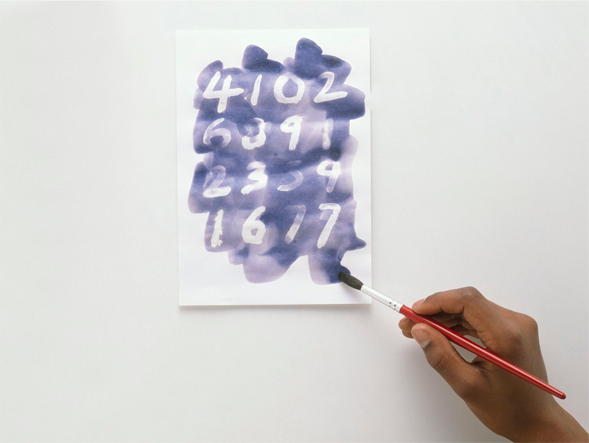 4102
6891
2359
1677